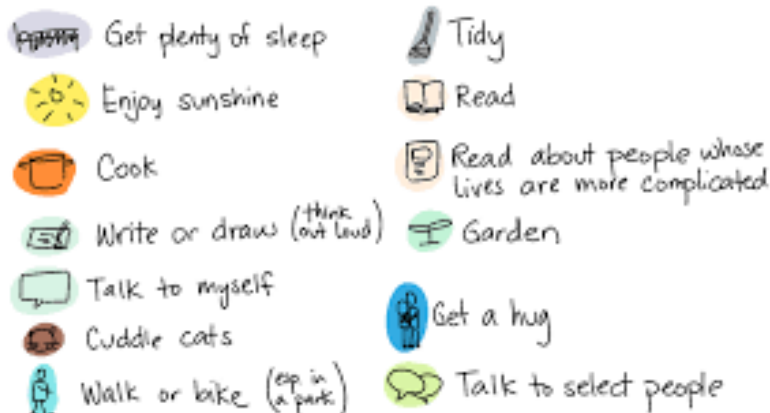 Get plenty of sleep
Enjoy sunshine
Cook
Write or draw (think out loud)
Talk to myself
Cuddle cats
Walk or bike (esp in a park)
Tidy
Read
Read about people whose
lives are more complicated
Garden
Get a hug
Talk to select people